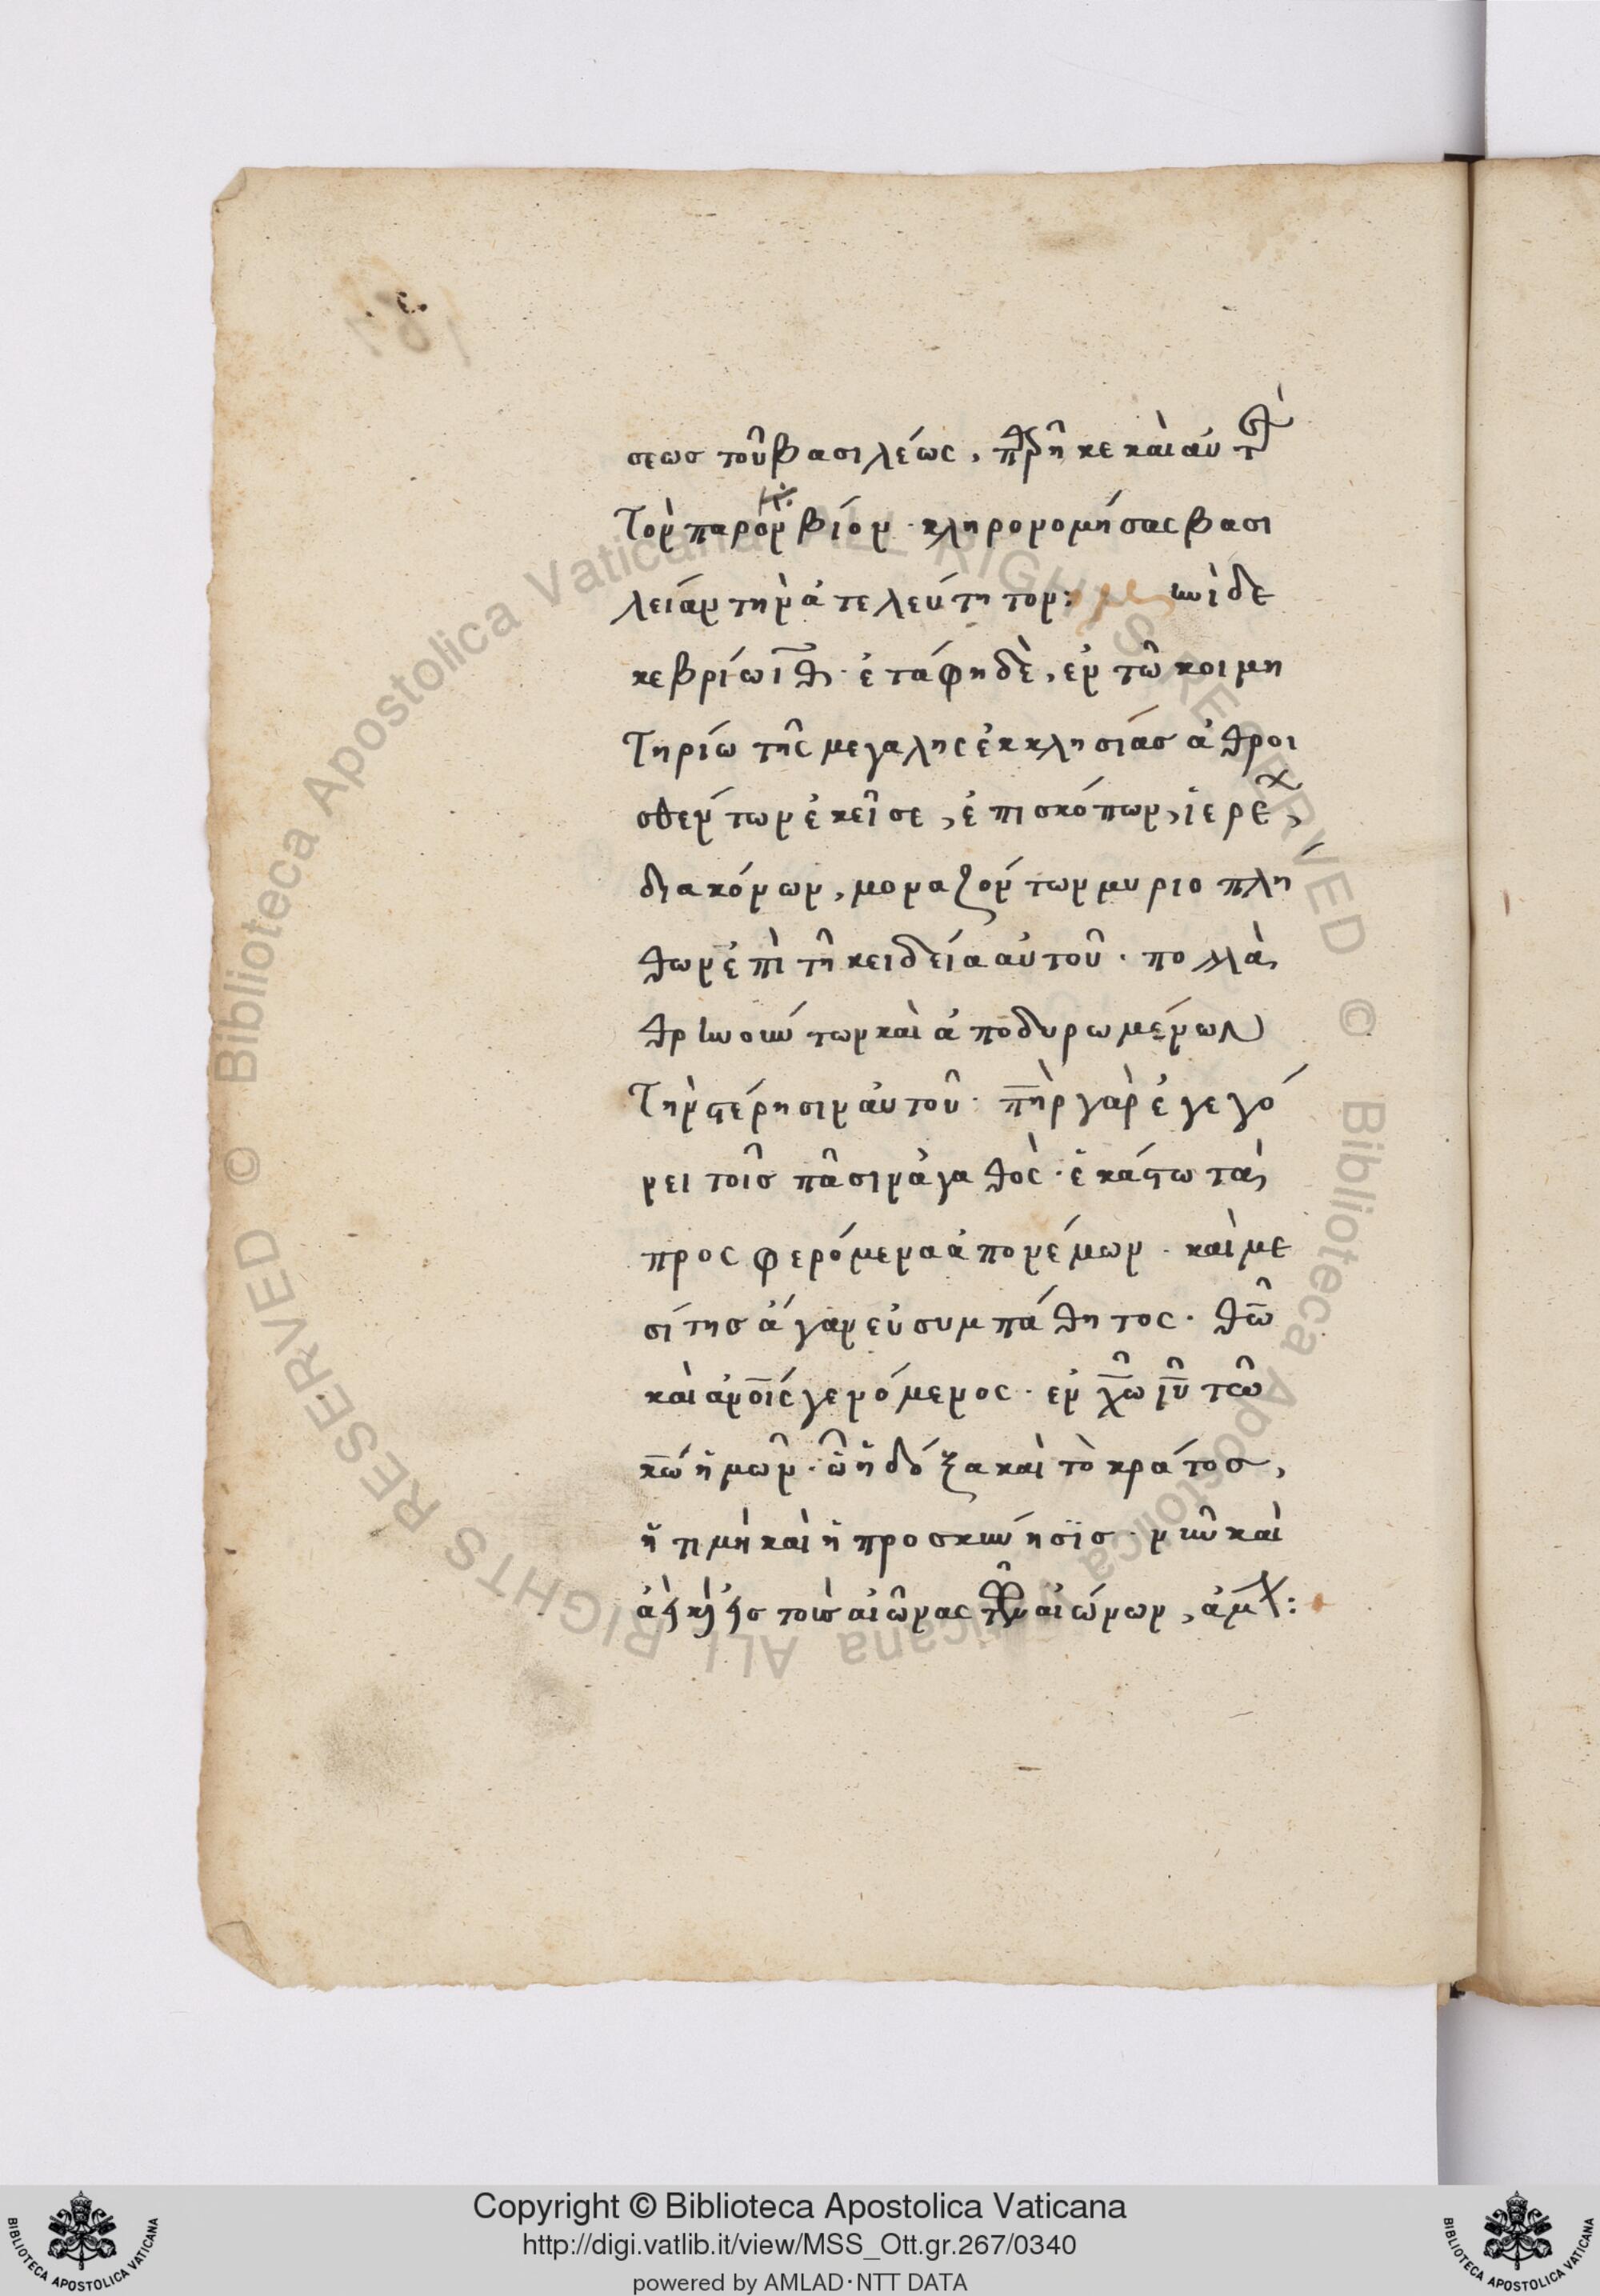 σεως τοῦ βασιλέως, παρῆκε καὶ αὐτὸς
τὸν παρὸν βίον · κληρονομήσας βασι
λείαν τὴν ἀτελεύτητον:
ἐτάφη δὲ, ἐν τῶ κοιμη
τηρίω τῆς μεγαλης ἐκκλησίας ἀθροι
σθέντων ἐκεῖσε, ἐπισκόπων, ἱερέων,
διακόνων, μοναζόντων μυριοπλή
θων ἐπὶ τῆ κειδεία αὐτοῦ · πολλὰ
θρηνούντων καὶ ἀποδυρωμένων
τὴν στέρησιν αὐτοῦ · πῆρ γὰρ ἐγεγό
νει τοῖς πᾶσιν ἀγαθὸς · ἑκάστω τὰ
προσφερόμενα ἀπονέμων · καὶ με
σίτης ἄγαν εὐσυμπάθητος · θῶ
καὶ ἀνοῖς γενόμενος · ἐν χῶ ἰῦ τῶ
κῶ ἡμῶν · ὧ ἡ δόξα καὶ τὸ κράτος,
ἡ τιμὴ καὶ ἡ προσκύνησις · νῦν καὶ
ἀεὶ καὶ εἰς τοὺς αἰῶνας τῶν αἰώνων, ἀμήν:
Copyright © Biblioteca Apostolica Vaticana
http://digi.vatlib.it/view/MSS_Ott.gr.267/0340
powered by AMLAD·NTT DATA
BIBLIOTECA APOSTOLICA VATICANA
BIBLIOTECA APOSTOLICA VATICANA